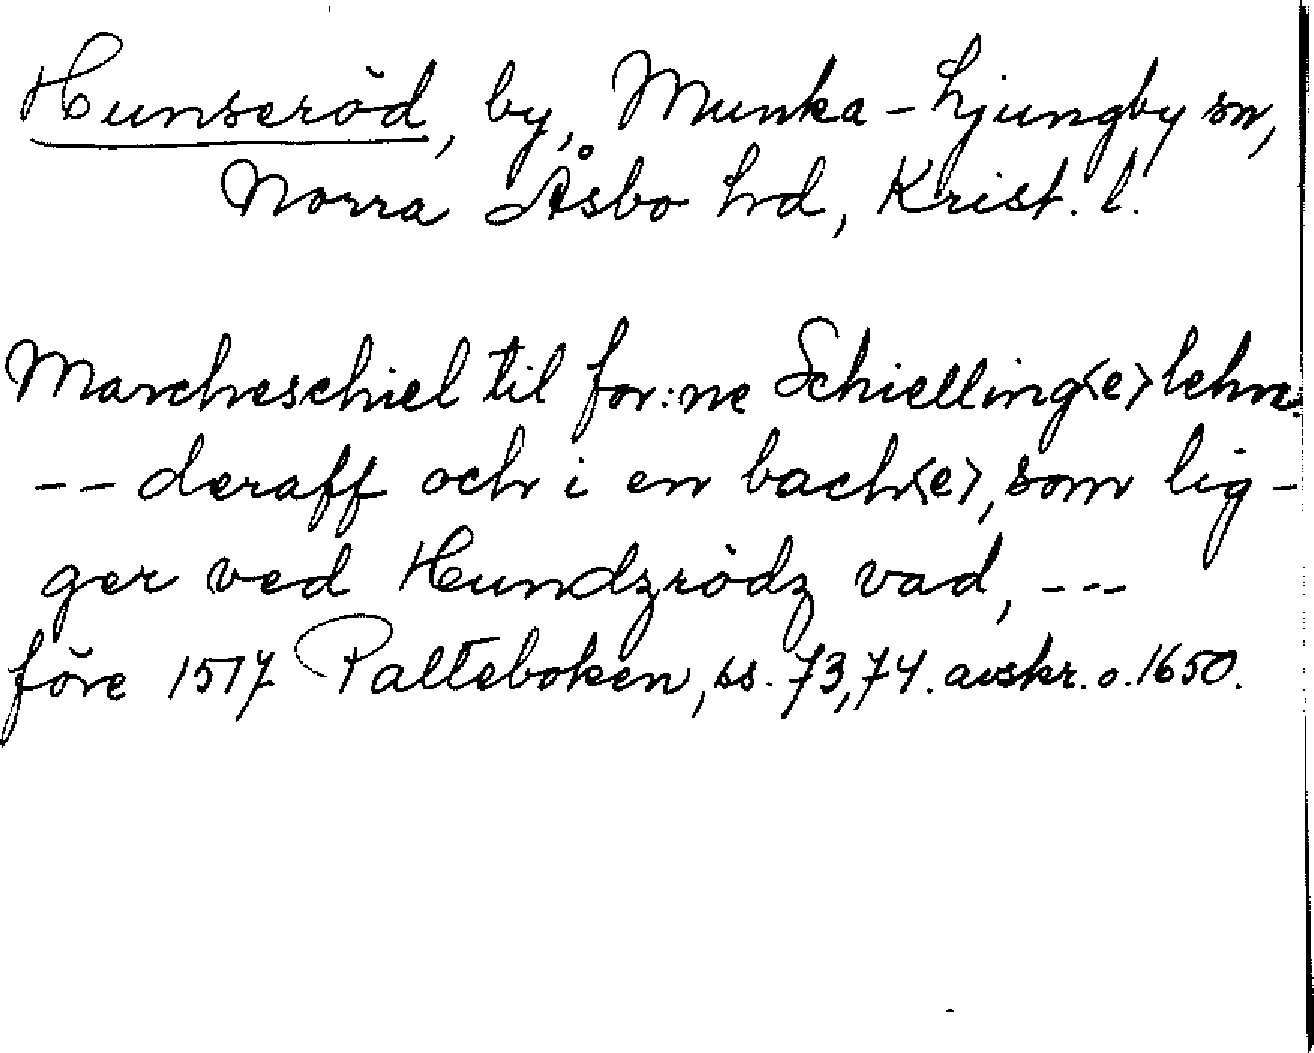 Hunseröd, by, Munka-Ljungby sn,
Norra Åsbo hd, Krist. l.
Marcheschiel til for:ne Schielling<e> lehn:
-- deraff och i en bach<e>, som lig-
ger ved Hundzrödz vad, ---
före 1517 Palteboken, ss. 73, 74. avskr. o. 1650.